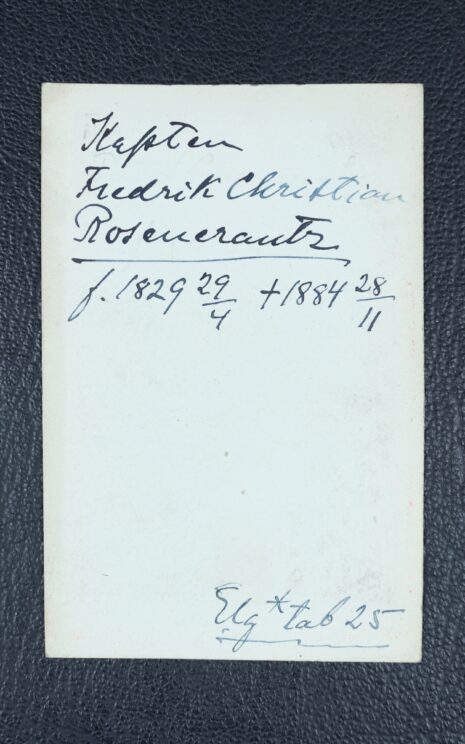 Kapten
Fredrik Christian
Rosencrantz
f. 1829 29/4 +1884 28/11
Elg* tab 25